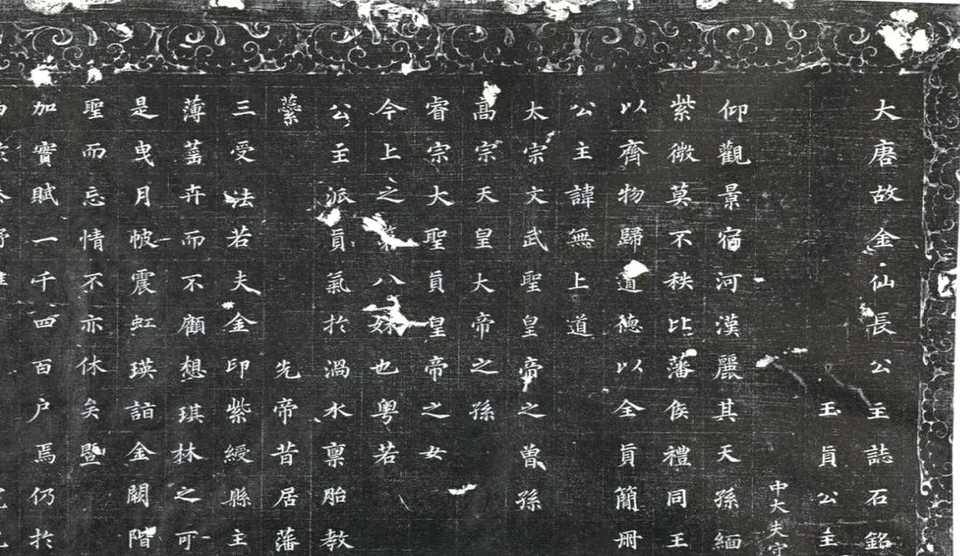 大唐故金仙長公主誌石銘
玉真公主
中大夫守
仰觀景宿河漢麗其天孫緬
紫微莫不秩比藩侯禮同王
以齊物歸道德以全真簡冊
公主諱無上道
太宗文武聖皇帝之曾孫
高宗天皇大帝之孫
睿宗大聖真皇帝之女
今上之八妹也粵若
公主派真氣於渦水稟胎教
蘂 先帝昔居藩
三受法若夫金印紫綬縣主
薄卉而不顧想琪林之可
是曳月帔震虹瑛詣金闕階
聖而忘情不亦休矣暨
加實賦一千四百户焉仍於